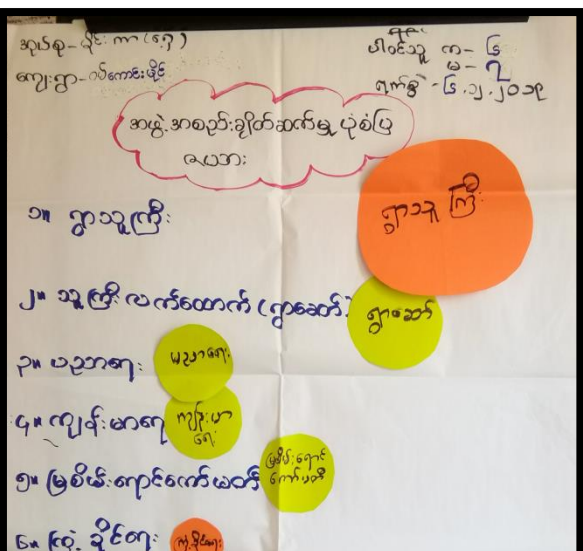 အုပ်စု - မိုင်းကာ (ရှေ့)
ကျေးရွာ - ဝမ်ကောင်းမိုင်
ပါဝင်သူ က - ၆
မ - ၇
ရက်စွဲ - ၆.၁၂.၂၀၁၉
အဖွဲ့အစည်းချိတ်ဆက်မှု ပုံစံပြ
ဇယား
၁။ ရွာသူကြီး
ရွာသူကြီး
၂။ သူကြီးလက်ထောက် (ရွာဆော်)
ရွာဆော်
၃။ ပညာရေး
ပညာရေး
၄။ ကျန်းမာရေး
ကျန်းမာ
ရေး
၅။ မြစိမ်းရောင်ကော်မတီ
မြစိမ်းရောင်
ကော်မတီ
၆။ ကြံ့ခိုင်ရေး
ကြံ့ခိုင်ရေး